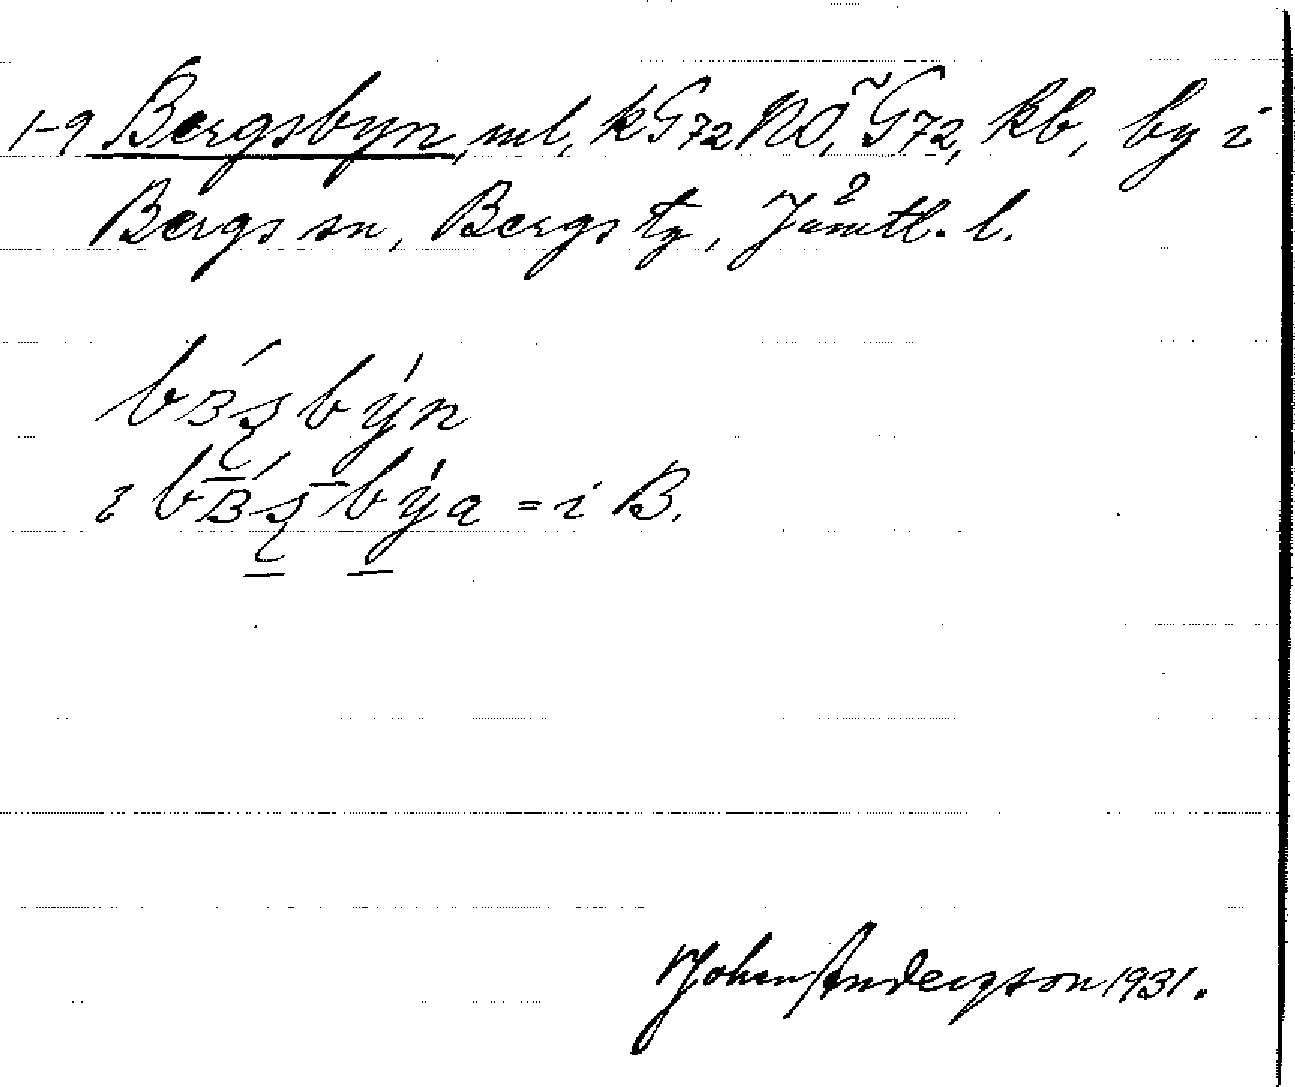 1-9 Bergsbyn, ml, kG72NO, G̃72, kb, by i
Bergs sn, Bergs tg, Jämtl. l.
bʙ́ʂbýn
i bʙ́ʂbýa = i B.
Johan Andersson 1931.